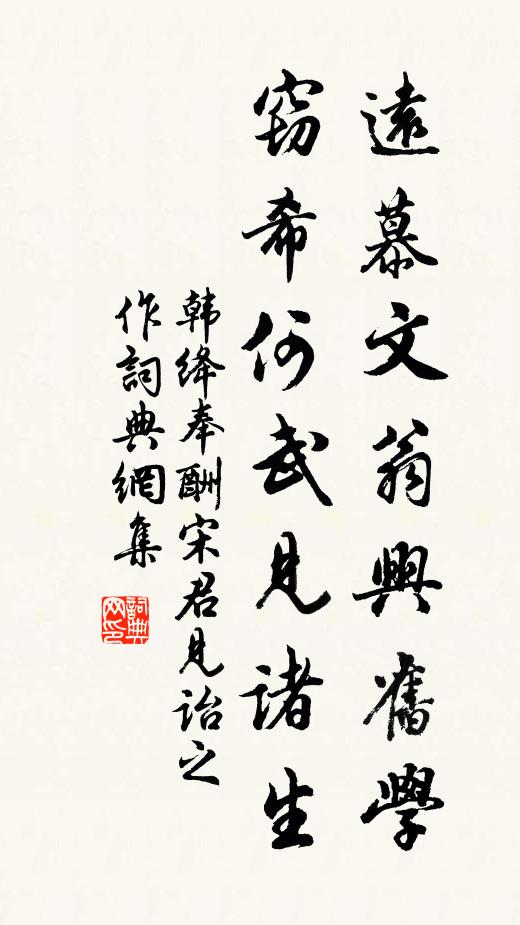 遠慕文翁興舊學
窈希何武見諸生
韩绛奉酬宋君見詒之
作詞典網集
詞典网印